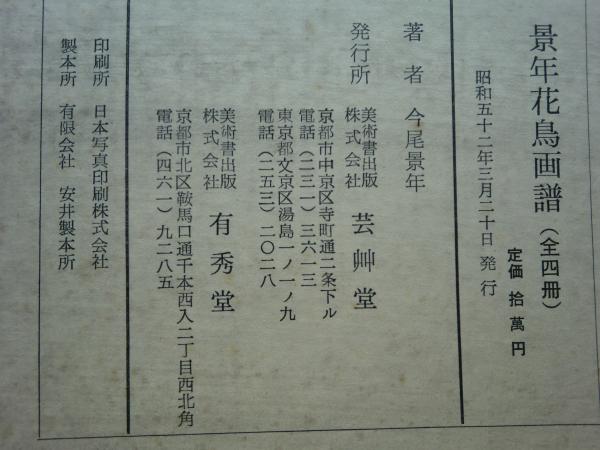 景年花鳥画譜（全四冊）
定価 拾萬円
昭和五十二年三月二十日 発行
著者 今尾景年
発行所 美術書出版 株式会社 芸艸堂
京都市中京区寺町通二条下ル
電話（二三一）三六一三
東京都文京区湯島一ノ一ノ九
電話（二五三）二〇二八
美術書出版 株式会社 有秀堂
京都市北区鞍馬口通千本西入二丁目西北角
電話（四六一）九二八五
印刷所 日本写真印刷株式会社
製本所 有限会社 安井製本所